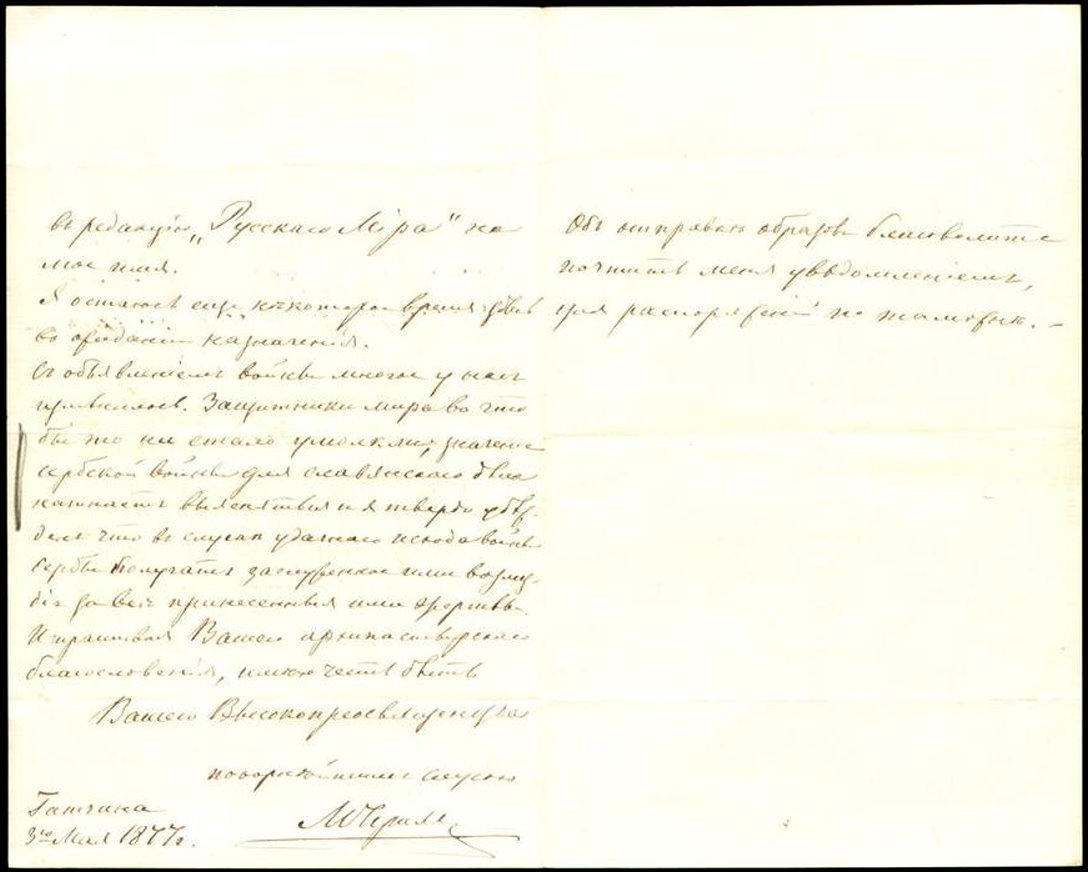 въ редакцію „Русскаго Міра" на
мое имя.
Я остаюсь еще нѣкоторое время здѣсь
въ ожиданіи назначенія.
Съ объявленіемъ войны многое у насъ
измѣнилось. Защитники мира во что
бы то ни стало умолкли, значеніе
сербской войны для славянскаго дѣла
начинаетъ выясняться и я твердо убѣж-
денъ что въ случаѣ удачнаго исхода войны
Сербы получатъ заслуженное ими возмез-
діе за всѣ принесенныя ими жертвы.
Испрашивая Вашего архипастырскаго
благословенія, имѣю честь быть
Вашего Высокопреосвященства
покорнѣйшимъ слугою
Гатчина
3го Мая 1877г.
Объ отправкѣ образовъ благоволите
почтить меня увѣдомленіемъ,
для распоряженій по таможнѣ. –